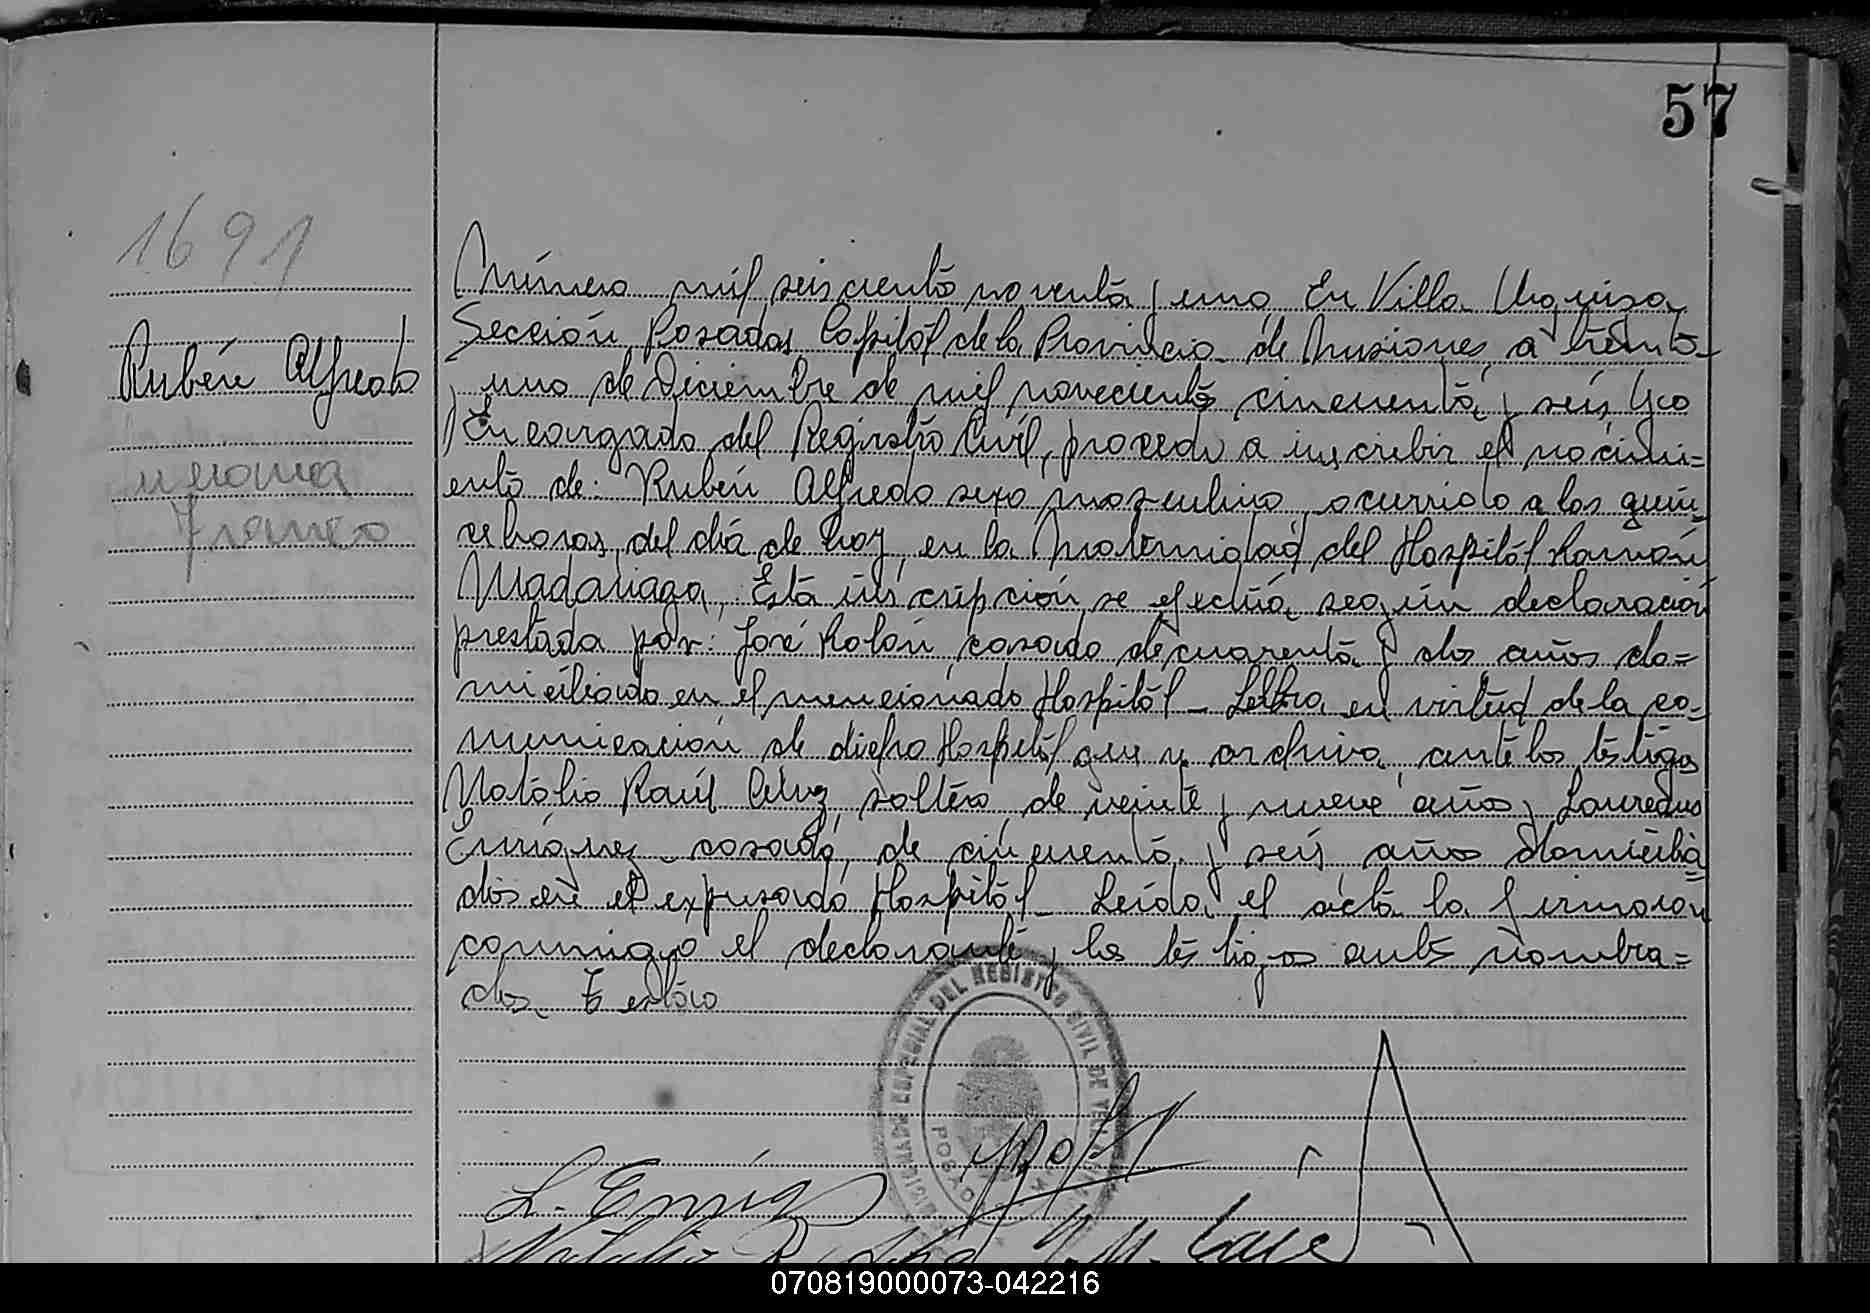 57
1691
Rubén Alfredo
Franco
Número mil seiscientos noventa y uno. En Villa Urquiza
Sección Posadas Capital de la Provincia de Misiones, a treinta
y uno de Diciembre de mil novecientos cincuenta y seis Yo
Encargado del Registro Civil, procedo a inscribir el nacimi-
ento de: Rubén Alfredo sexo masculino ocurrido a las quin
ce horas del día de hoy, en la Maternidad del Hospital Ramón
Madariaga, Esta inscripción se efectúa según declaración
prestada por: José Rolón casado de cuarenta y dos años do=
miciliado en el mencionado Hospital _ en virtud de la co-
municación de dicho Hospital que se archiva, ante los testigos
Natálio Raúl soltero, de veinte y nueve años y Laureano
Enríquez casado, de cincuenta y seis años domicilia
dos en el expresado Hospital _ Leída el acta la firmaron
conmigo el declarante y los testigos antes nombra=
dos.
OFICINA ESPECIAL DEL REGISTRO CIVIL DE
L. Enríq
Natalio R.